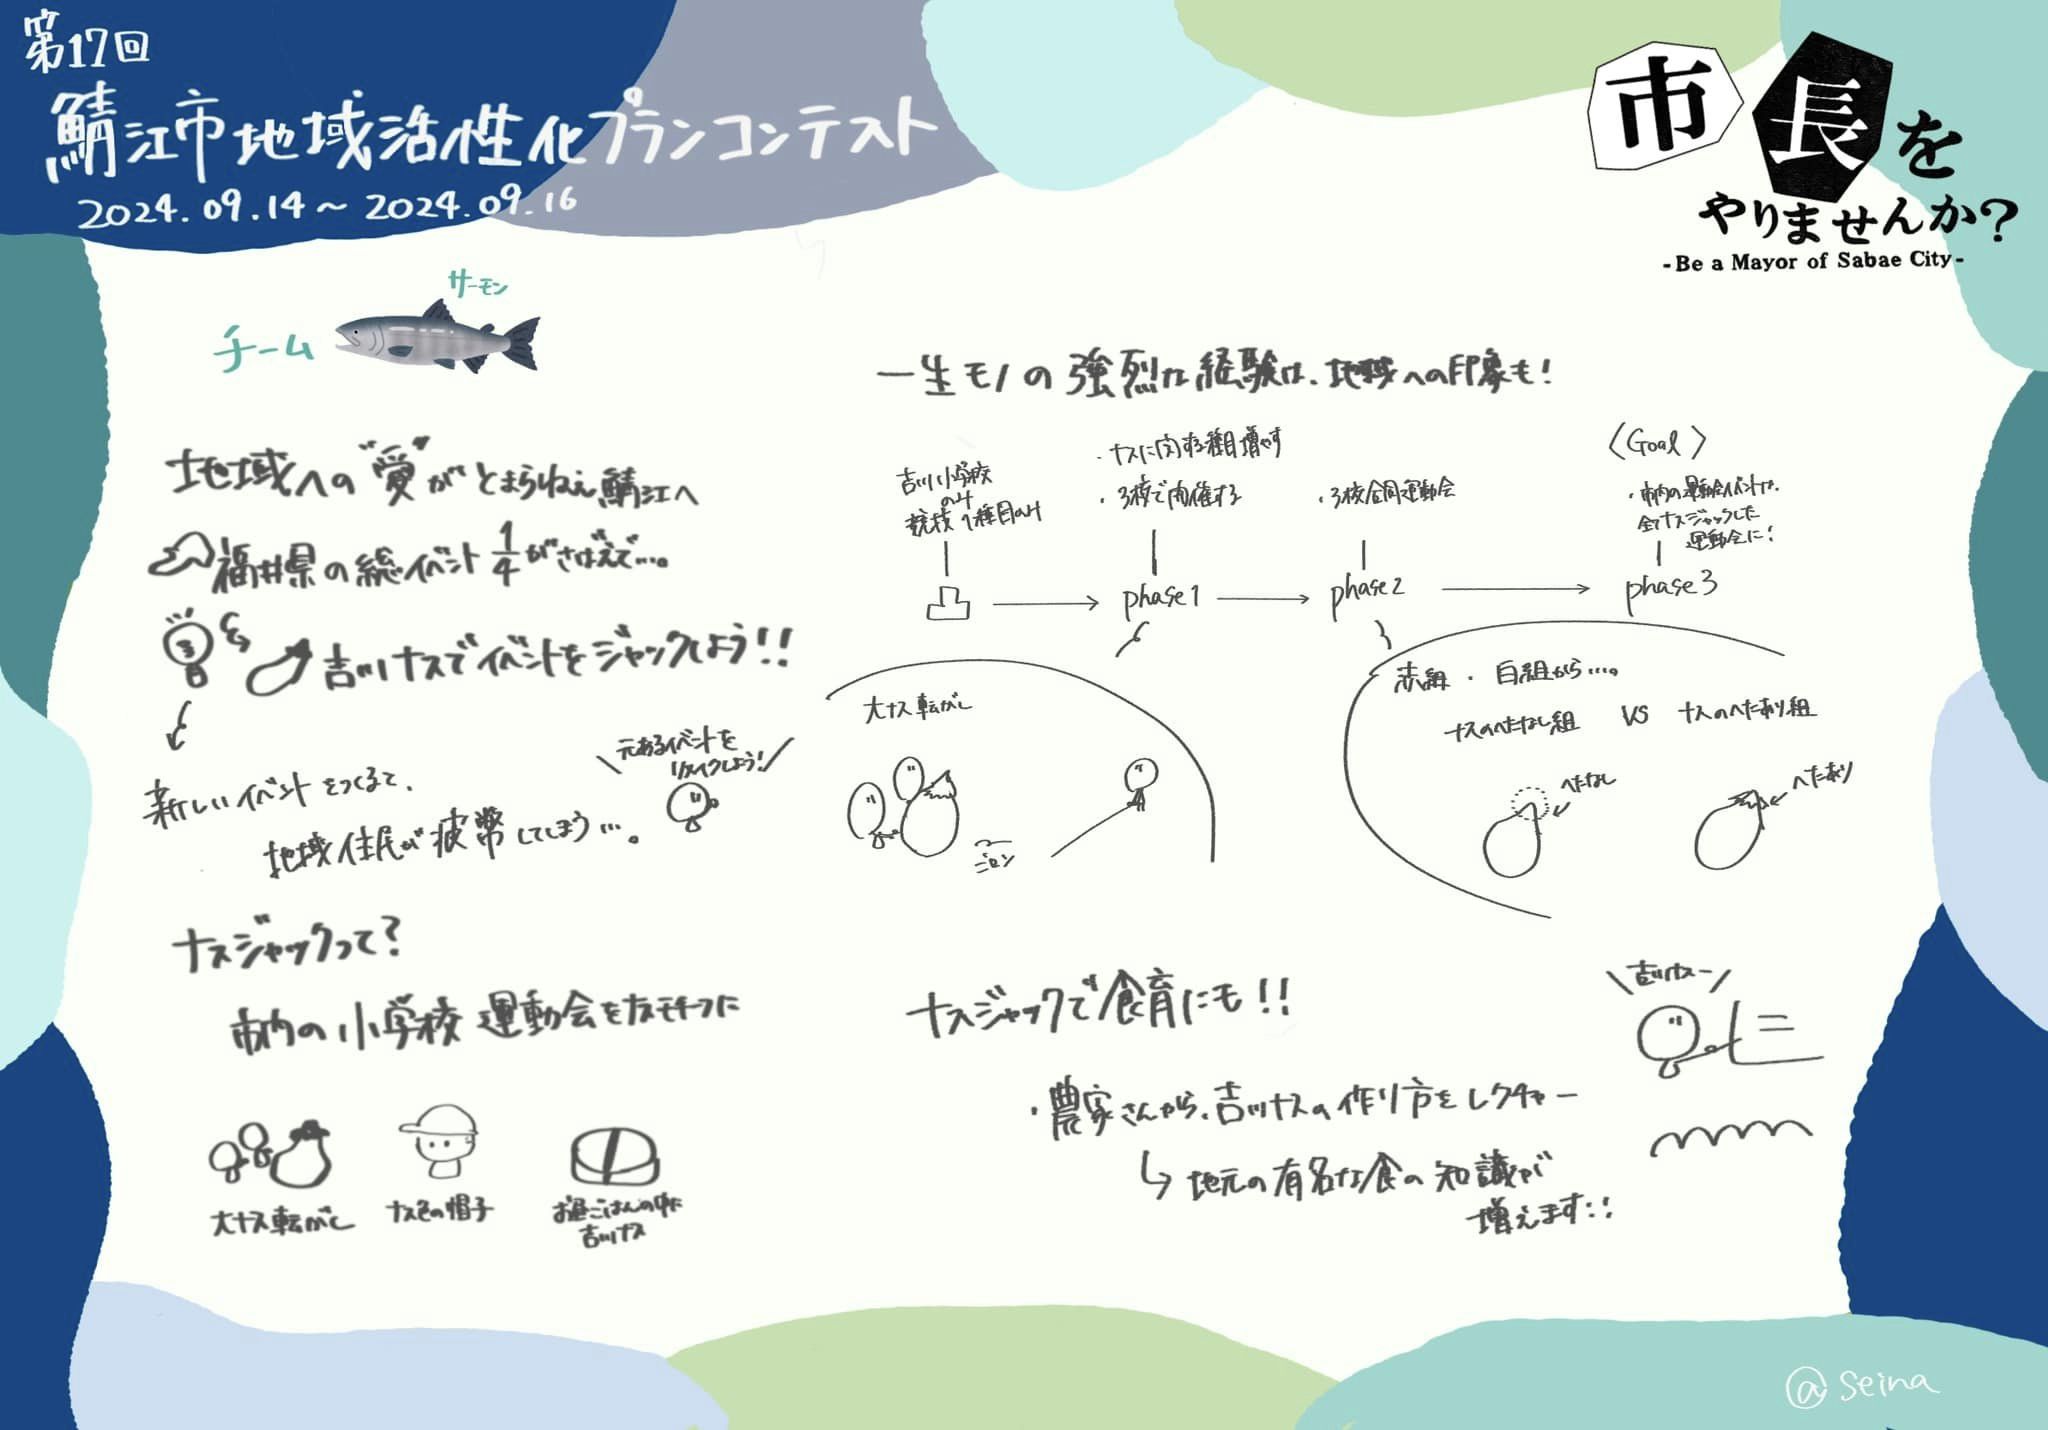 第17回
鯖江市地域活性化プランコンテスト
2024.09.14〜2024.09.16
市長を
やりませんか?
-Be a Mayor of Sabae City-
チーム
サーモン
地域への"愛"がとまらねぇ鯖江へ
福井県の総イベント1/4がさばえで…。
吉川ナスでイベントをジャックしよう!!
新しいイベントをつくるて、
地域住民が疲弊してしまう…。
元あるイベントを
リメイクしよう!
ナスジャックって?
市内の小学校運動会をモチーフに
大ナス転がし
ナス色の帽子
お昼ごはんの中に
吉川ナス
一生モノの強烈な経験は、地域への印象も!
吉川小学校
のみ
競技1種目のみ
・ナスに関する種目増やす
・3校で開催する
・3校合同運動会
〈Goal〉
・市内の運動会イベントが、
全てナスジャックした
運動会に!
phase1
phase2
phase3
大ナス転がし
ゴロン
赤組・白組から…。
ナスのへたなし組 VS ナスのへたあり組
へたなし
へたあり
ナスジャックで食育にも!!
・農家さんから、吉川ナスの作り方をレクチャー
地元の有名な食の知識が
増えます!!
吉川ナスー
@seina